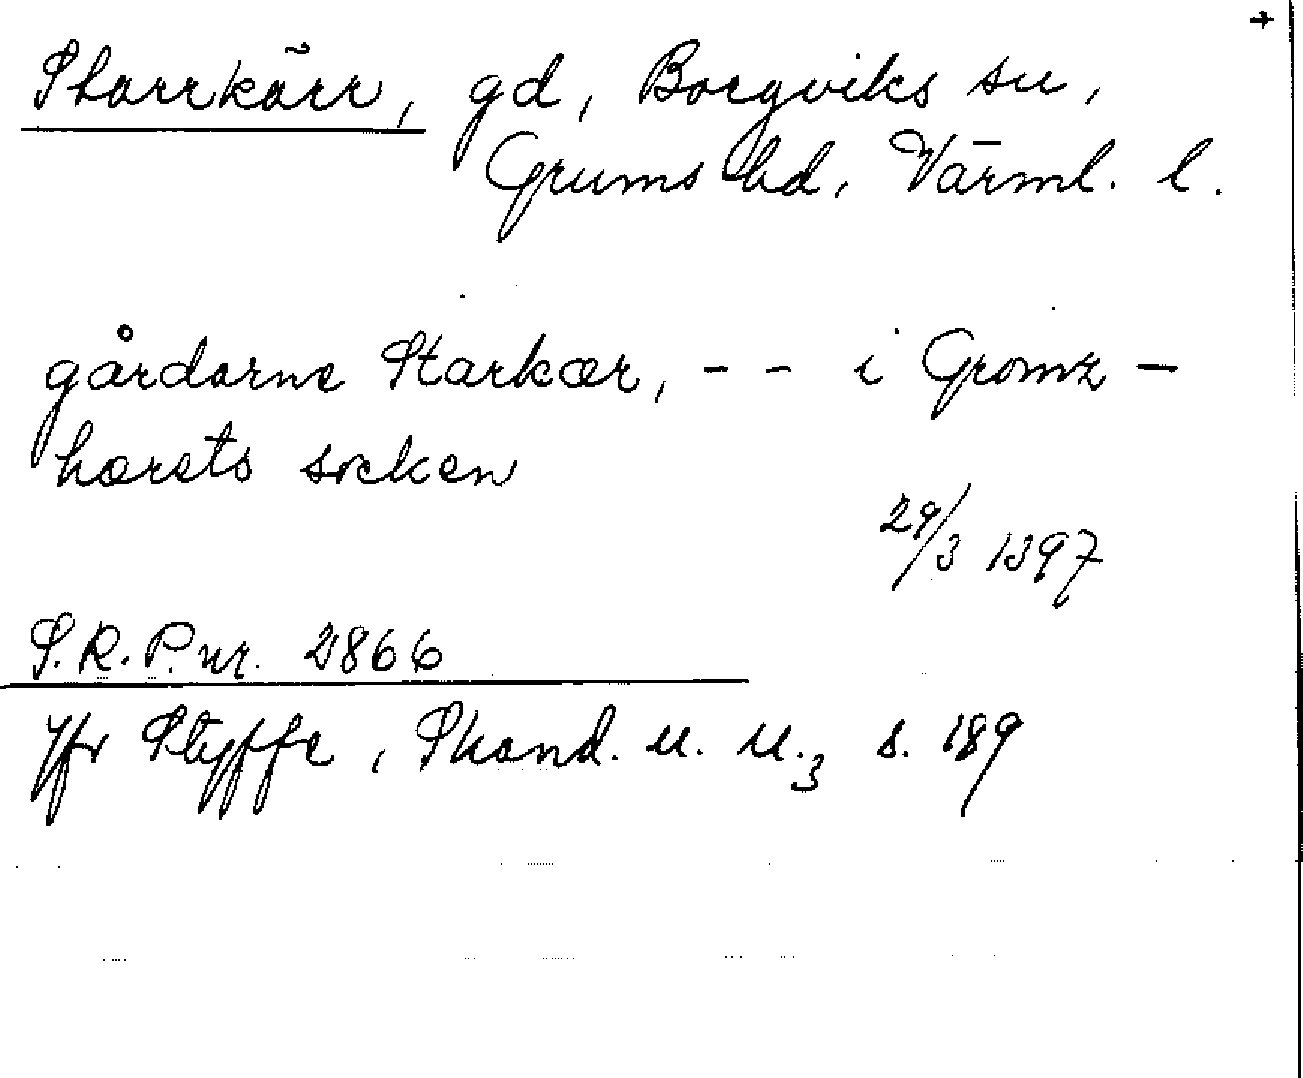 +
Starrkärr, gd, Borgviks sn,
Grums hd, Värml. l.
gårdarne Starkær, - - i Gromz -
hærets socken
29/3 1397
S.R.P. nr. 2866
Jfr Styffe, Skand. u. u.3 s. 189